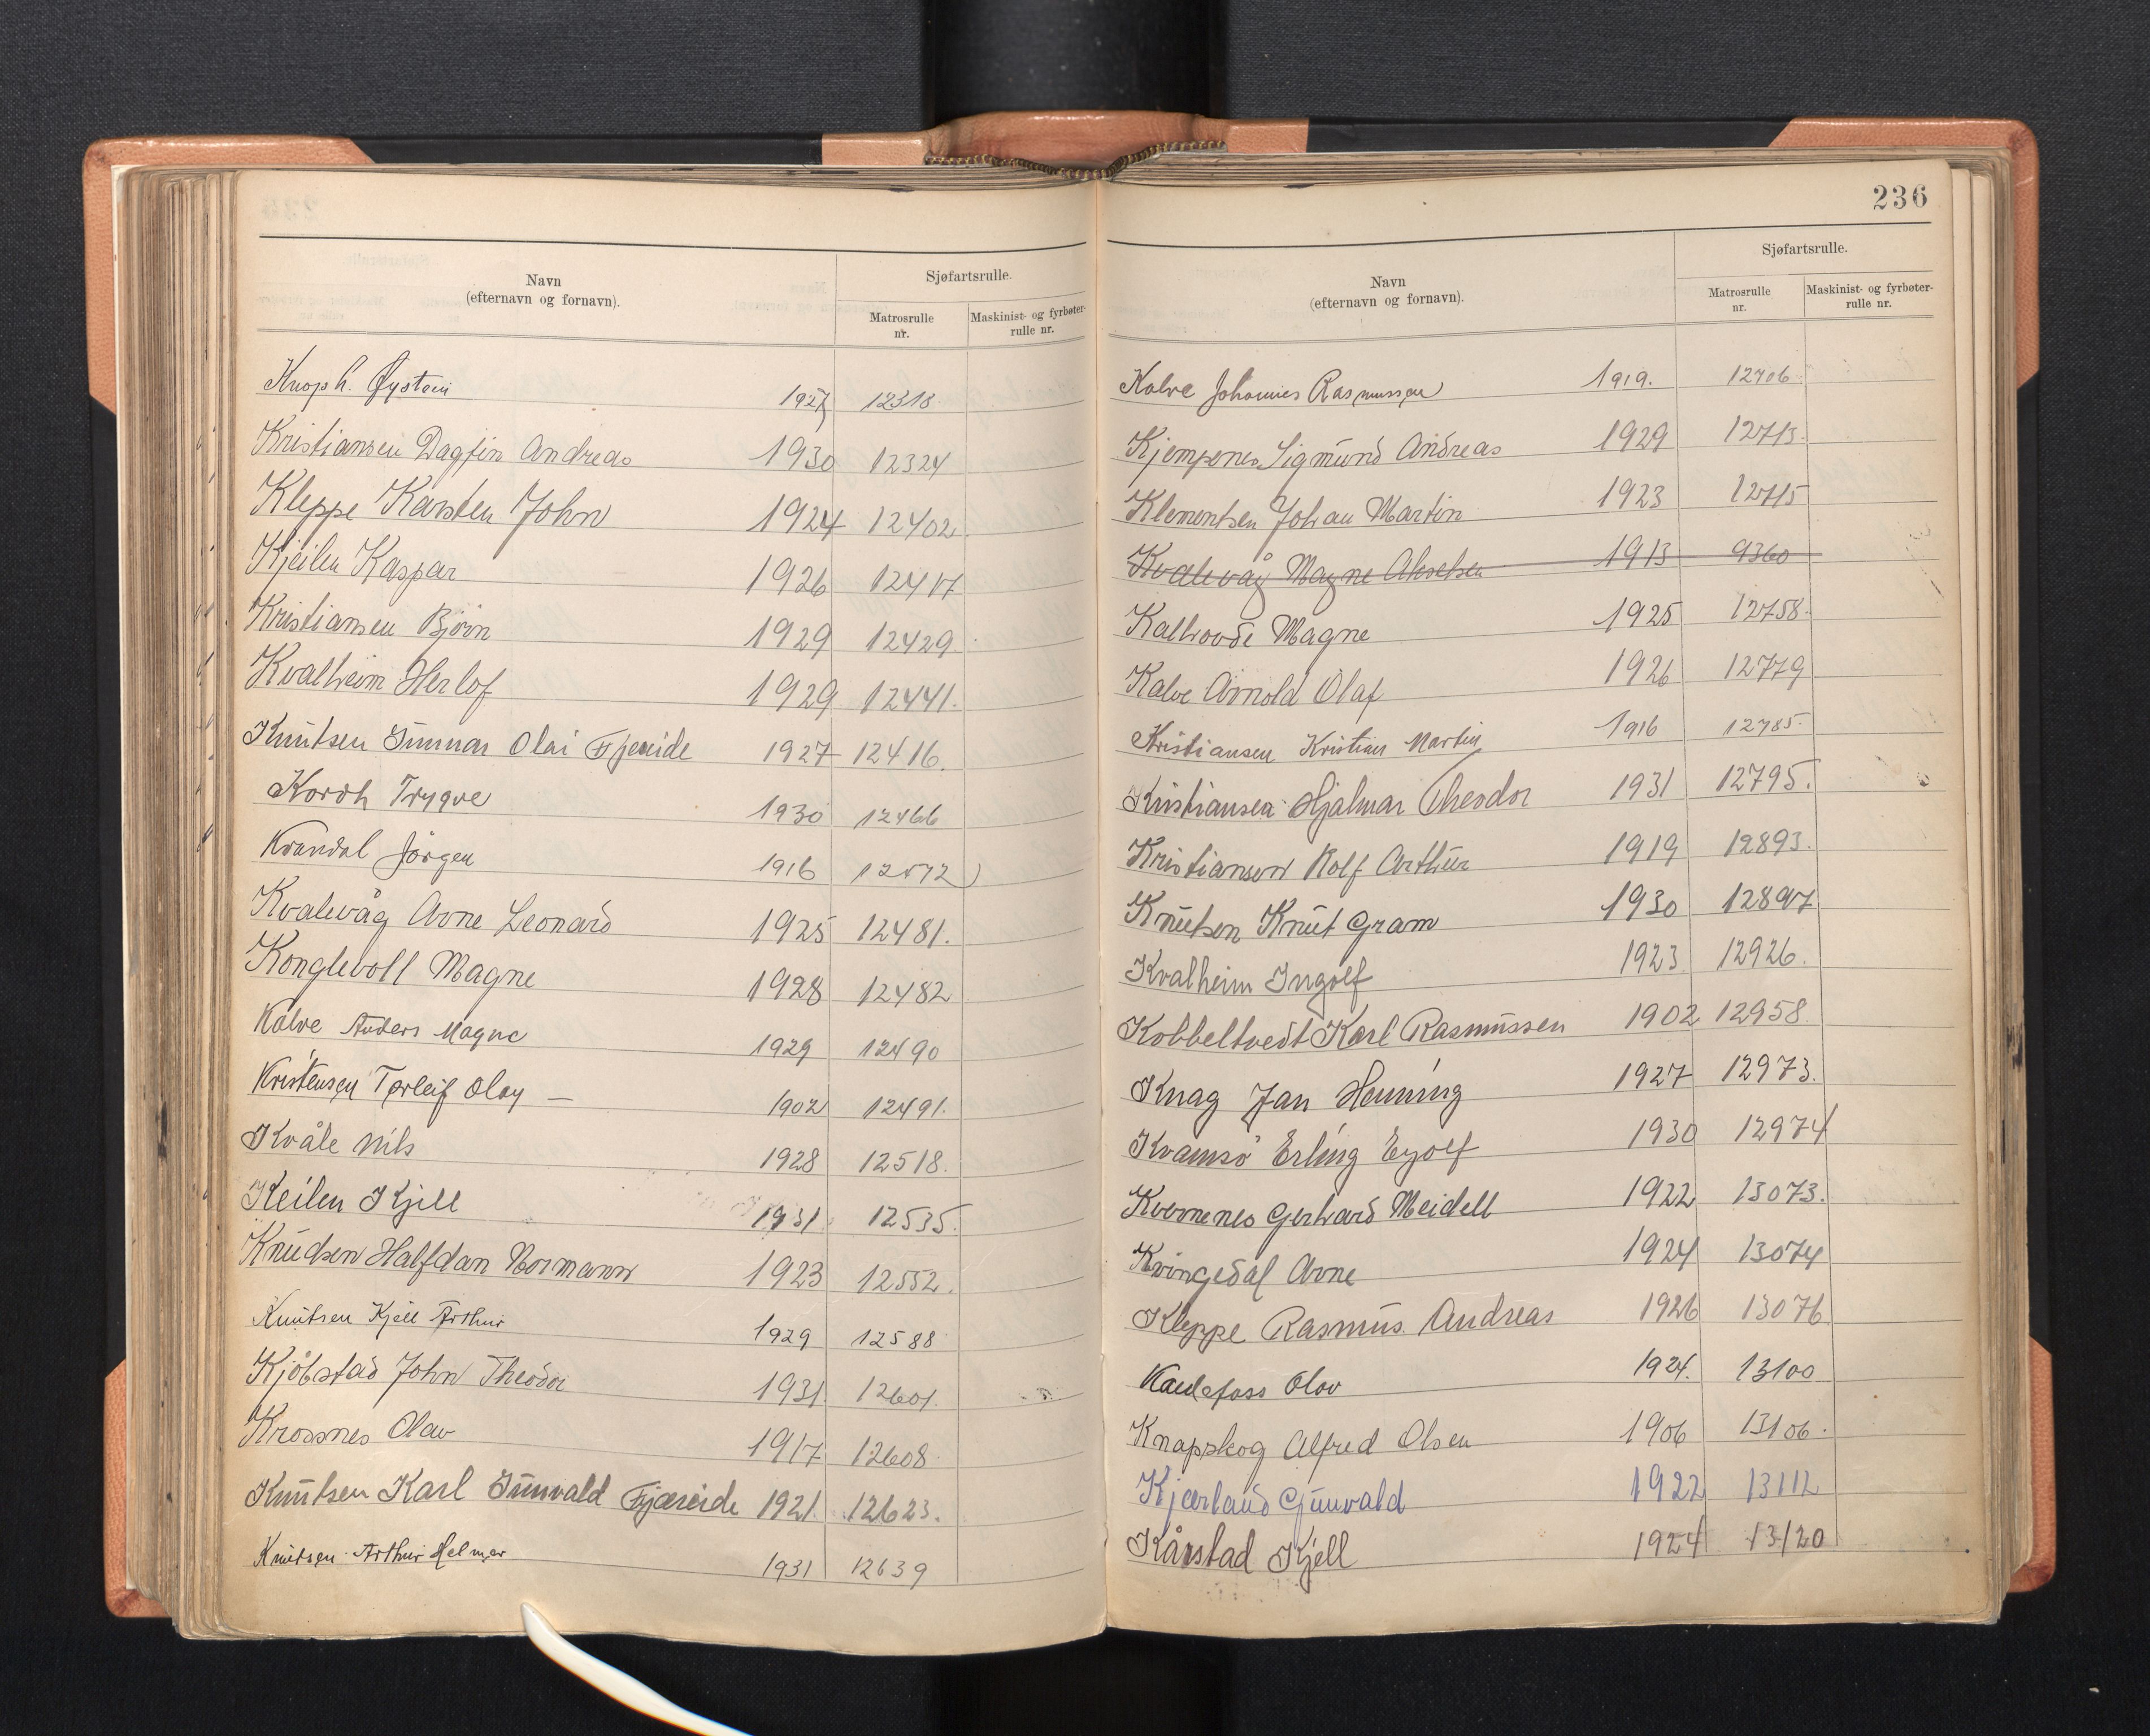 Navn
(efternavn og fornavn).
Sjøfartsrulle.
Matrosrulle
nr.
Maskinist- og fyrbøter-
rulle nr.
Knoph. Øystein 1927 12318.
Kristiansen Dagfin Andreas 1930 12324
Kleppe Karsten John 1924 12402
Kjeilen Kaspar 1926 12417
Kristiansen Bjørn 1929 12429
Kvalheim Herlof 1929 12441.
Knutsen Gunnar Olai Fjereide 1927 12416.
Kordh Trygve 1930 12466
Kvandal Jørgen 1916
Kvalevåg Arne Leonard 1925 12481.
Konglevoll Magne 1928 12482
Kalve Anders Magne 1929 12490
Kristensen Torleif Olav – 1902 12491.
Kvåle Nils 1928 12518.
Keilen Kjell 1931. 12535.
Knudsen Halfdan Normann 1923 12552.
Knutsen Kjell Arthur 1929 12588
Kjöbstad John Theodor 1931. 12601.
Krossnes Olav 1917 12608
Knutsen Karl Gunvald Fjæreide 1921. 12623.
Knutsen Arthur Helmer 1931 12639
236
Navn
(efternavn og fornavn).
Sjøfartsrulle.
Matrosrulle
nr.
Maskinist- og fyrbøter-
rulle nr.
Kalve Johannes Rasmussen 1919. 12706.
Kjempenes Sigmund Andreas 1929 12713.
Klementsen Johan Martin 1923 12715
Kvalevåg Magne Akselsen 1913 9360
Kalhovde Magne 1925 12758.
Kalve Arnold Olaf 1926 12779
Kristiansen Kristian Martin 1916 12785.
Kristiansen Hjalmar Theodor 1931 12795.
Kristiansen Rolf Arthur 1919 12893.
Knutsen Knut Gram 1930 12897
Kvalheim Ingolf 1923 12926.
Kobbeltvedt Karl Rasmussen 1902 12958.
Knag Jan Henning 1927 12973.
Kvamsö Erling Eyolf 1930 12974
Kvernenes Gerhard Meidell 1922 13073.
Kvingedal Arne 1924 13074
Kleppe Rasmus Andreas 1926 13076
Kaulefoss Olav 1924. 13100
Knapskog Alfred Olsen 1906 13106.
Kjærland Gunvald 1922 13112
Kårstad Kjell 1924 13120